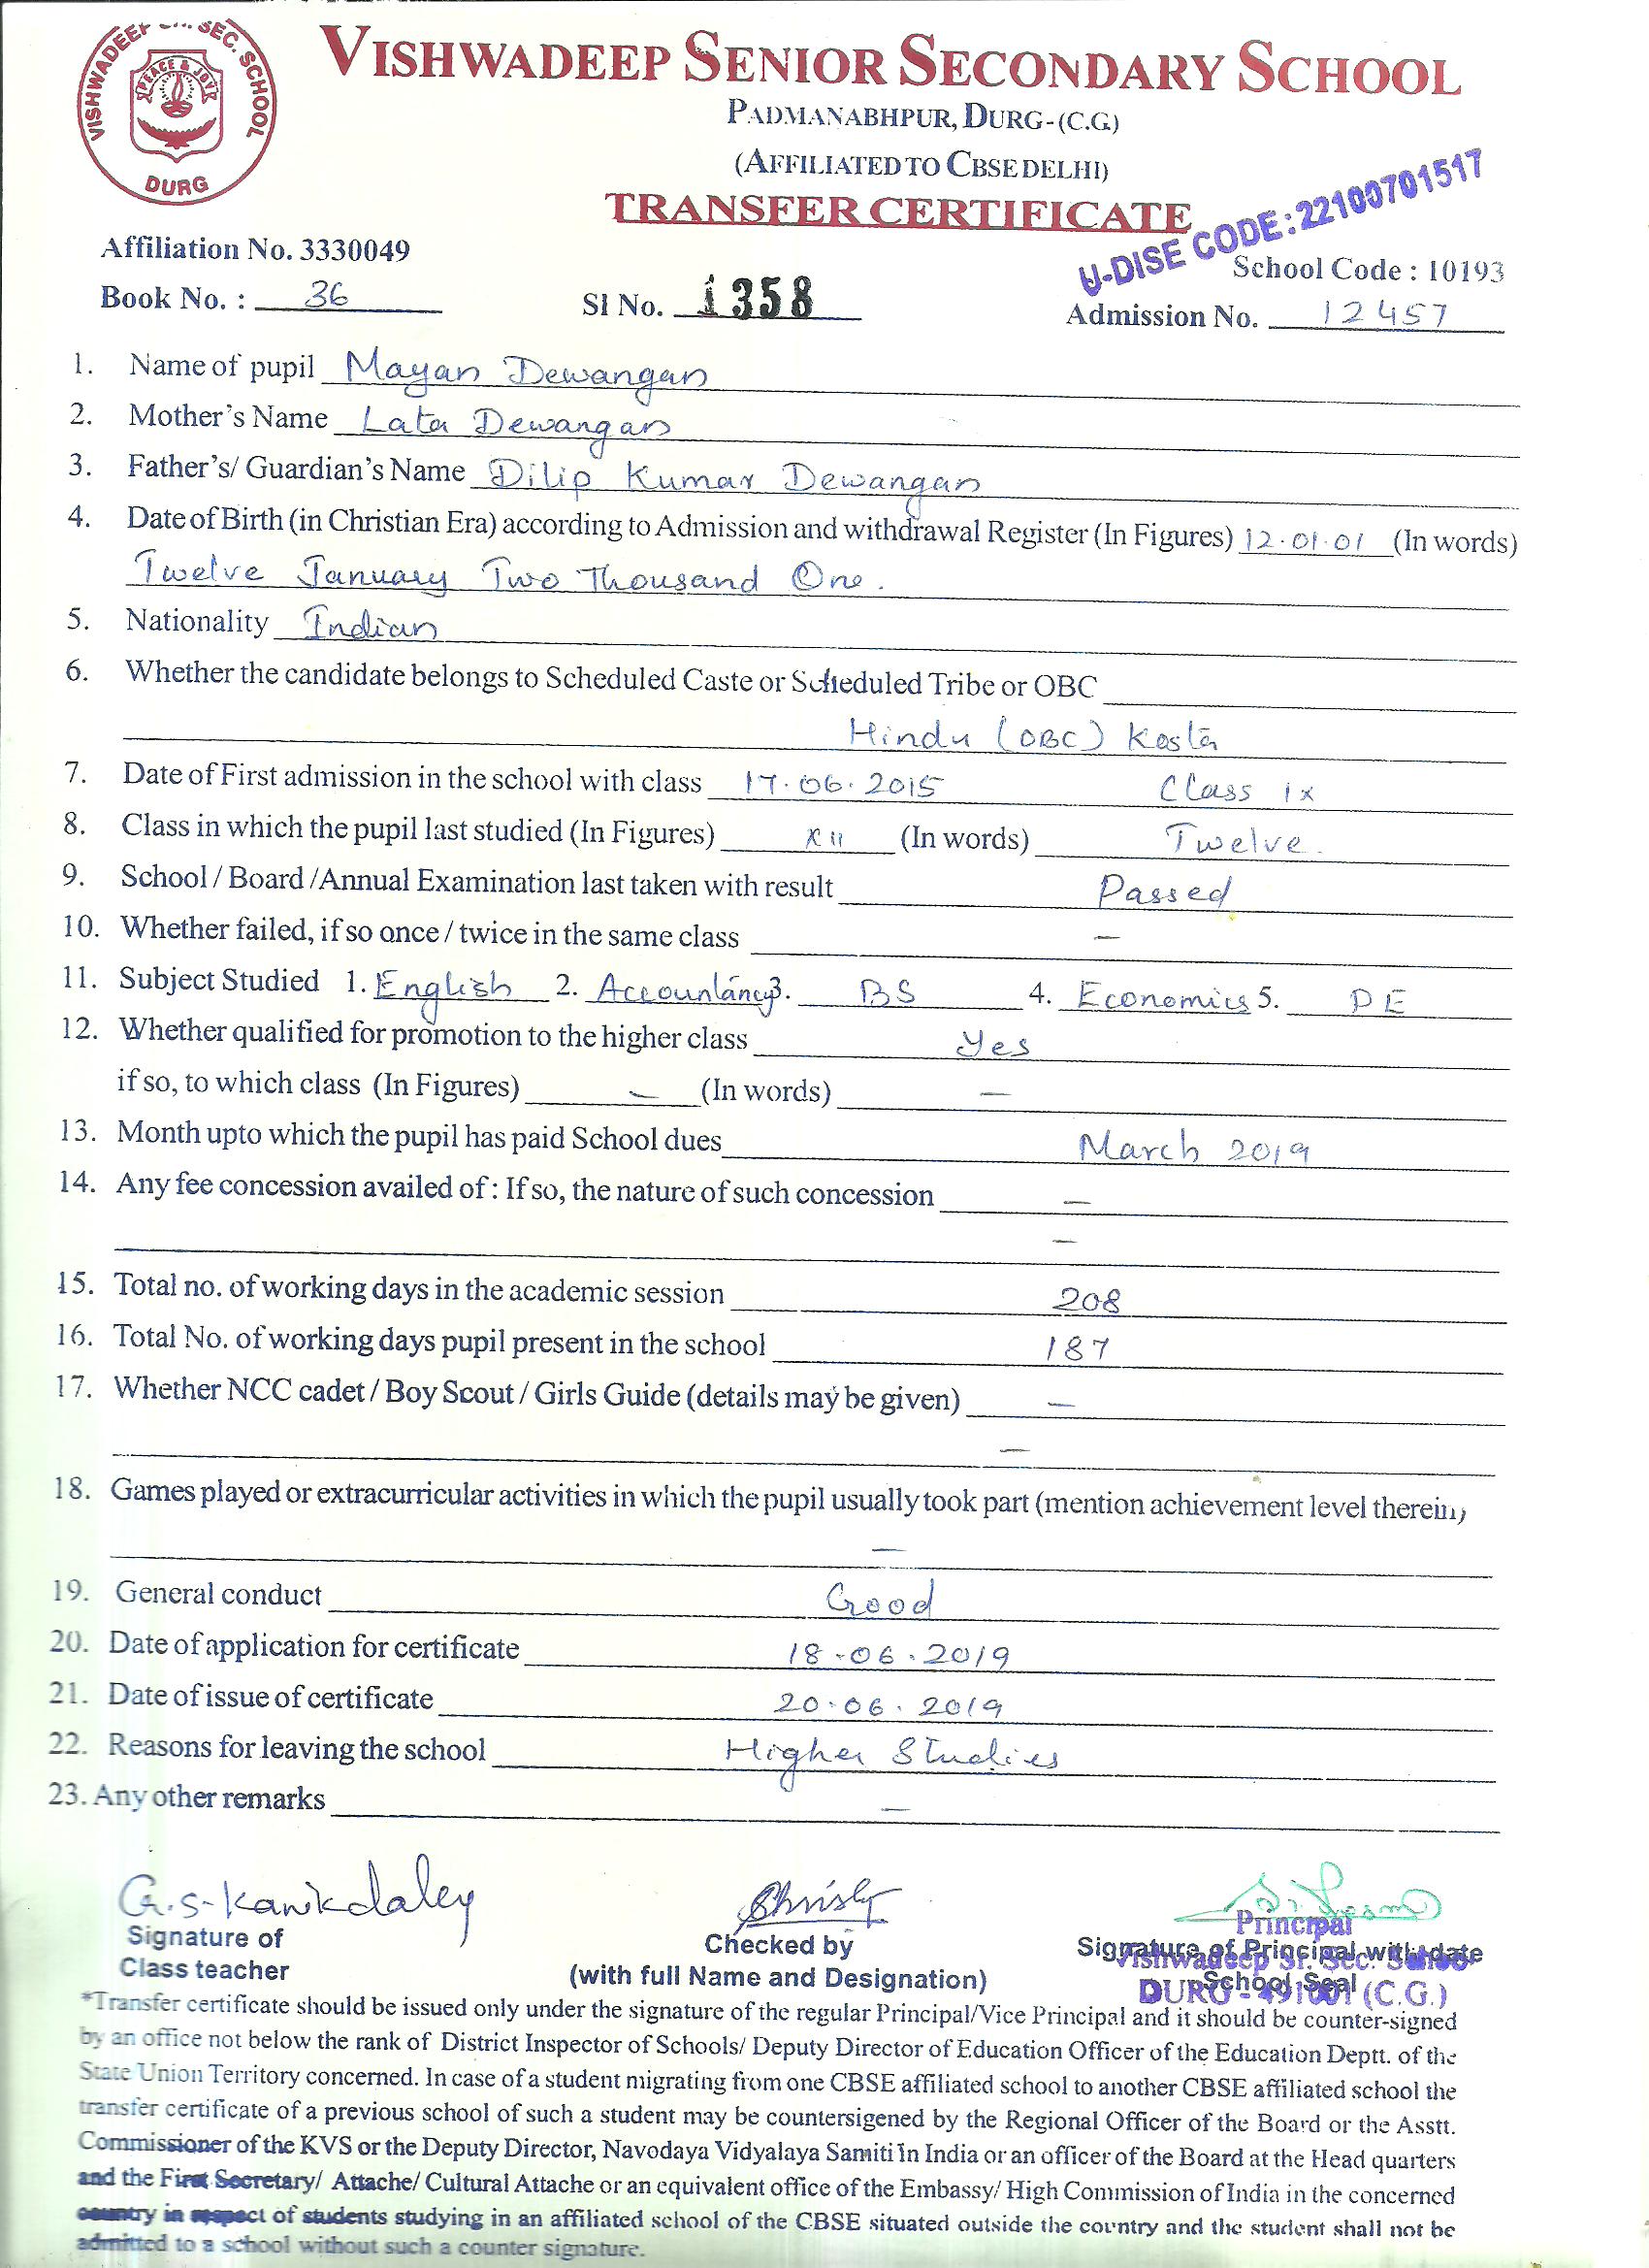 VISHWADEEP SR. SEC. SCHOOL
PEACE & JOY
DURG
VISHWADEEP SENIOR SECONDARY SCHOOL
PADMANABHPUR, DURG-(C.G.)
(AFFILIATED TO CBSE DELHI)
TRANSFER CERTIFICATE
U-DISE CODE: 22100701517
Affiliation No. 3330049 School Code : 10193
Book No. : 36 Sl No. 1358 Admission No. 12457
1. Name of pupil Mayan Dewangan
2. Mother's Name Lata Dewangan
3. Father's/ Guardian's Name Dilip Kumar Dewangan
4. Date of Birth (in Christian Era) according to Admission and withdrawal Register (In Figures) 12.01.01 (In words)
Twelve January Two Thousand One.
5. Nationality Indian
6. Whether the candidate belongs to Scheduled Caste or Scheduled Tribe or OBC
Hindu (OBC) Kosta
7. Date of First admission in the school with class 17.06.2015 Class IX
8. Class in which the pupil last studied (In Figures) XII (In words) Twelve.
9. School / Board /Annual Examination last taken with result Passed
10. Whether failed, if so once / twice in the same class —
11. Subject Studied 1. English 2. Accountancy 3. BS 4. Economics 5. PE
12. Whether qualified for promotion to the higher class Yes
if so, to which class (In Figures) — (In words) —
13. Month upto which the pupil has paid School dues March 2019
14. Any fee concession availed of : If so, the nature of such concession —
—
15. Total no. of working days in the academic session 208
16. Total No. of working days pupil present in the school 187
17. Whether NCC cadet / Boy Scout / Girls Guide (details may be given) —
—
18. Games played or extracurricular activities in which the pupil usually took part (mention achievement level therein)
—
19. General conduct Good
20. Date of application for certificate 18-06.2019
21. Date of issue of certificate 20.06.2019
22. Reasons for leaving the school Higher Studies
23. Any other remarks —
G.S. Kanikdaley
Principal
Signature of Checked by Signature of Principal with date
Vishwadeep Sr. Sec. School
Class teacher (with full Name and Designation) School Seal
DURG - 491001 (C.G.)
*Transfer certificate should be issued only under the signature of the regular Principal/Vice Principal and it should be counter-signed
by an office not below the rank of District Inspector of Schools/ Deputy Director of Education Officer of the Education Deptt. of the
State Union Territory concerned. In case of a student migrating from one CBSE affiliated school to another CBSE affiliated school the
transfer certificate of a previous school of such a student may be countersigened by the Regional Officer of the Board or the Asstt.
Commissioner of the KVS or the Deputy Director, Navodaya Vidyalaya Samiti in India or an officer of the Board at the Head quarters
and the First Secretary/ Attache/ Cultural Attache or an equivalent office of the Embassy/ High Commission of India in the concerned
country in respect of students studying in an affiliated school of the CBSE situated outside the country and the student shall not be
admitted to a school without such a counter signature.